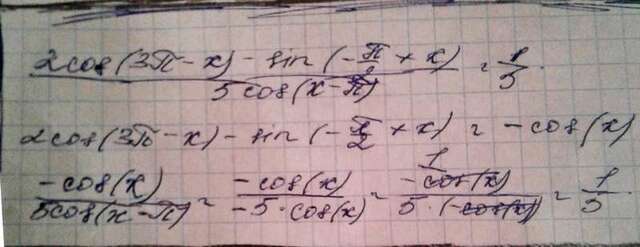 (2cos(3π-x) - sin(-π/2 + x)) / (5cos(x-π)) = 1/5.
2cos(3π-x) - sin(-π/2 + x) = -cos(x)
-cos(x) / 5cos(x-π) = -cos(x) / -5·cos(x) = 1 -cos(x) / 5·(-cos(x)) = 1/5.